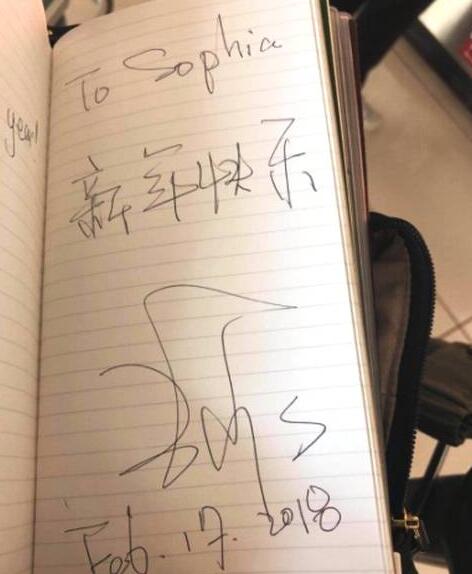 year!
To Sophia
新年快乐
Feb. 17. 2018